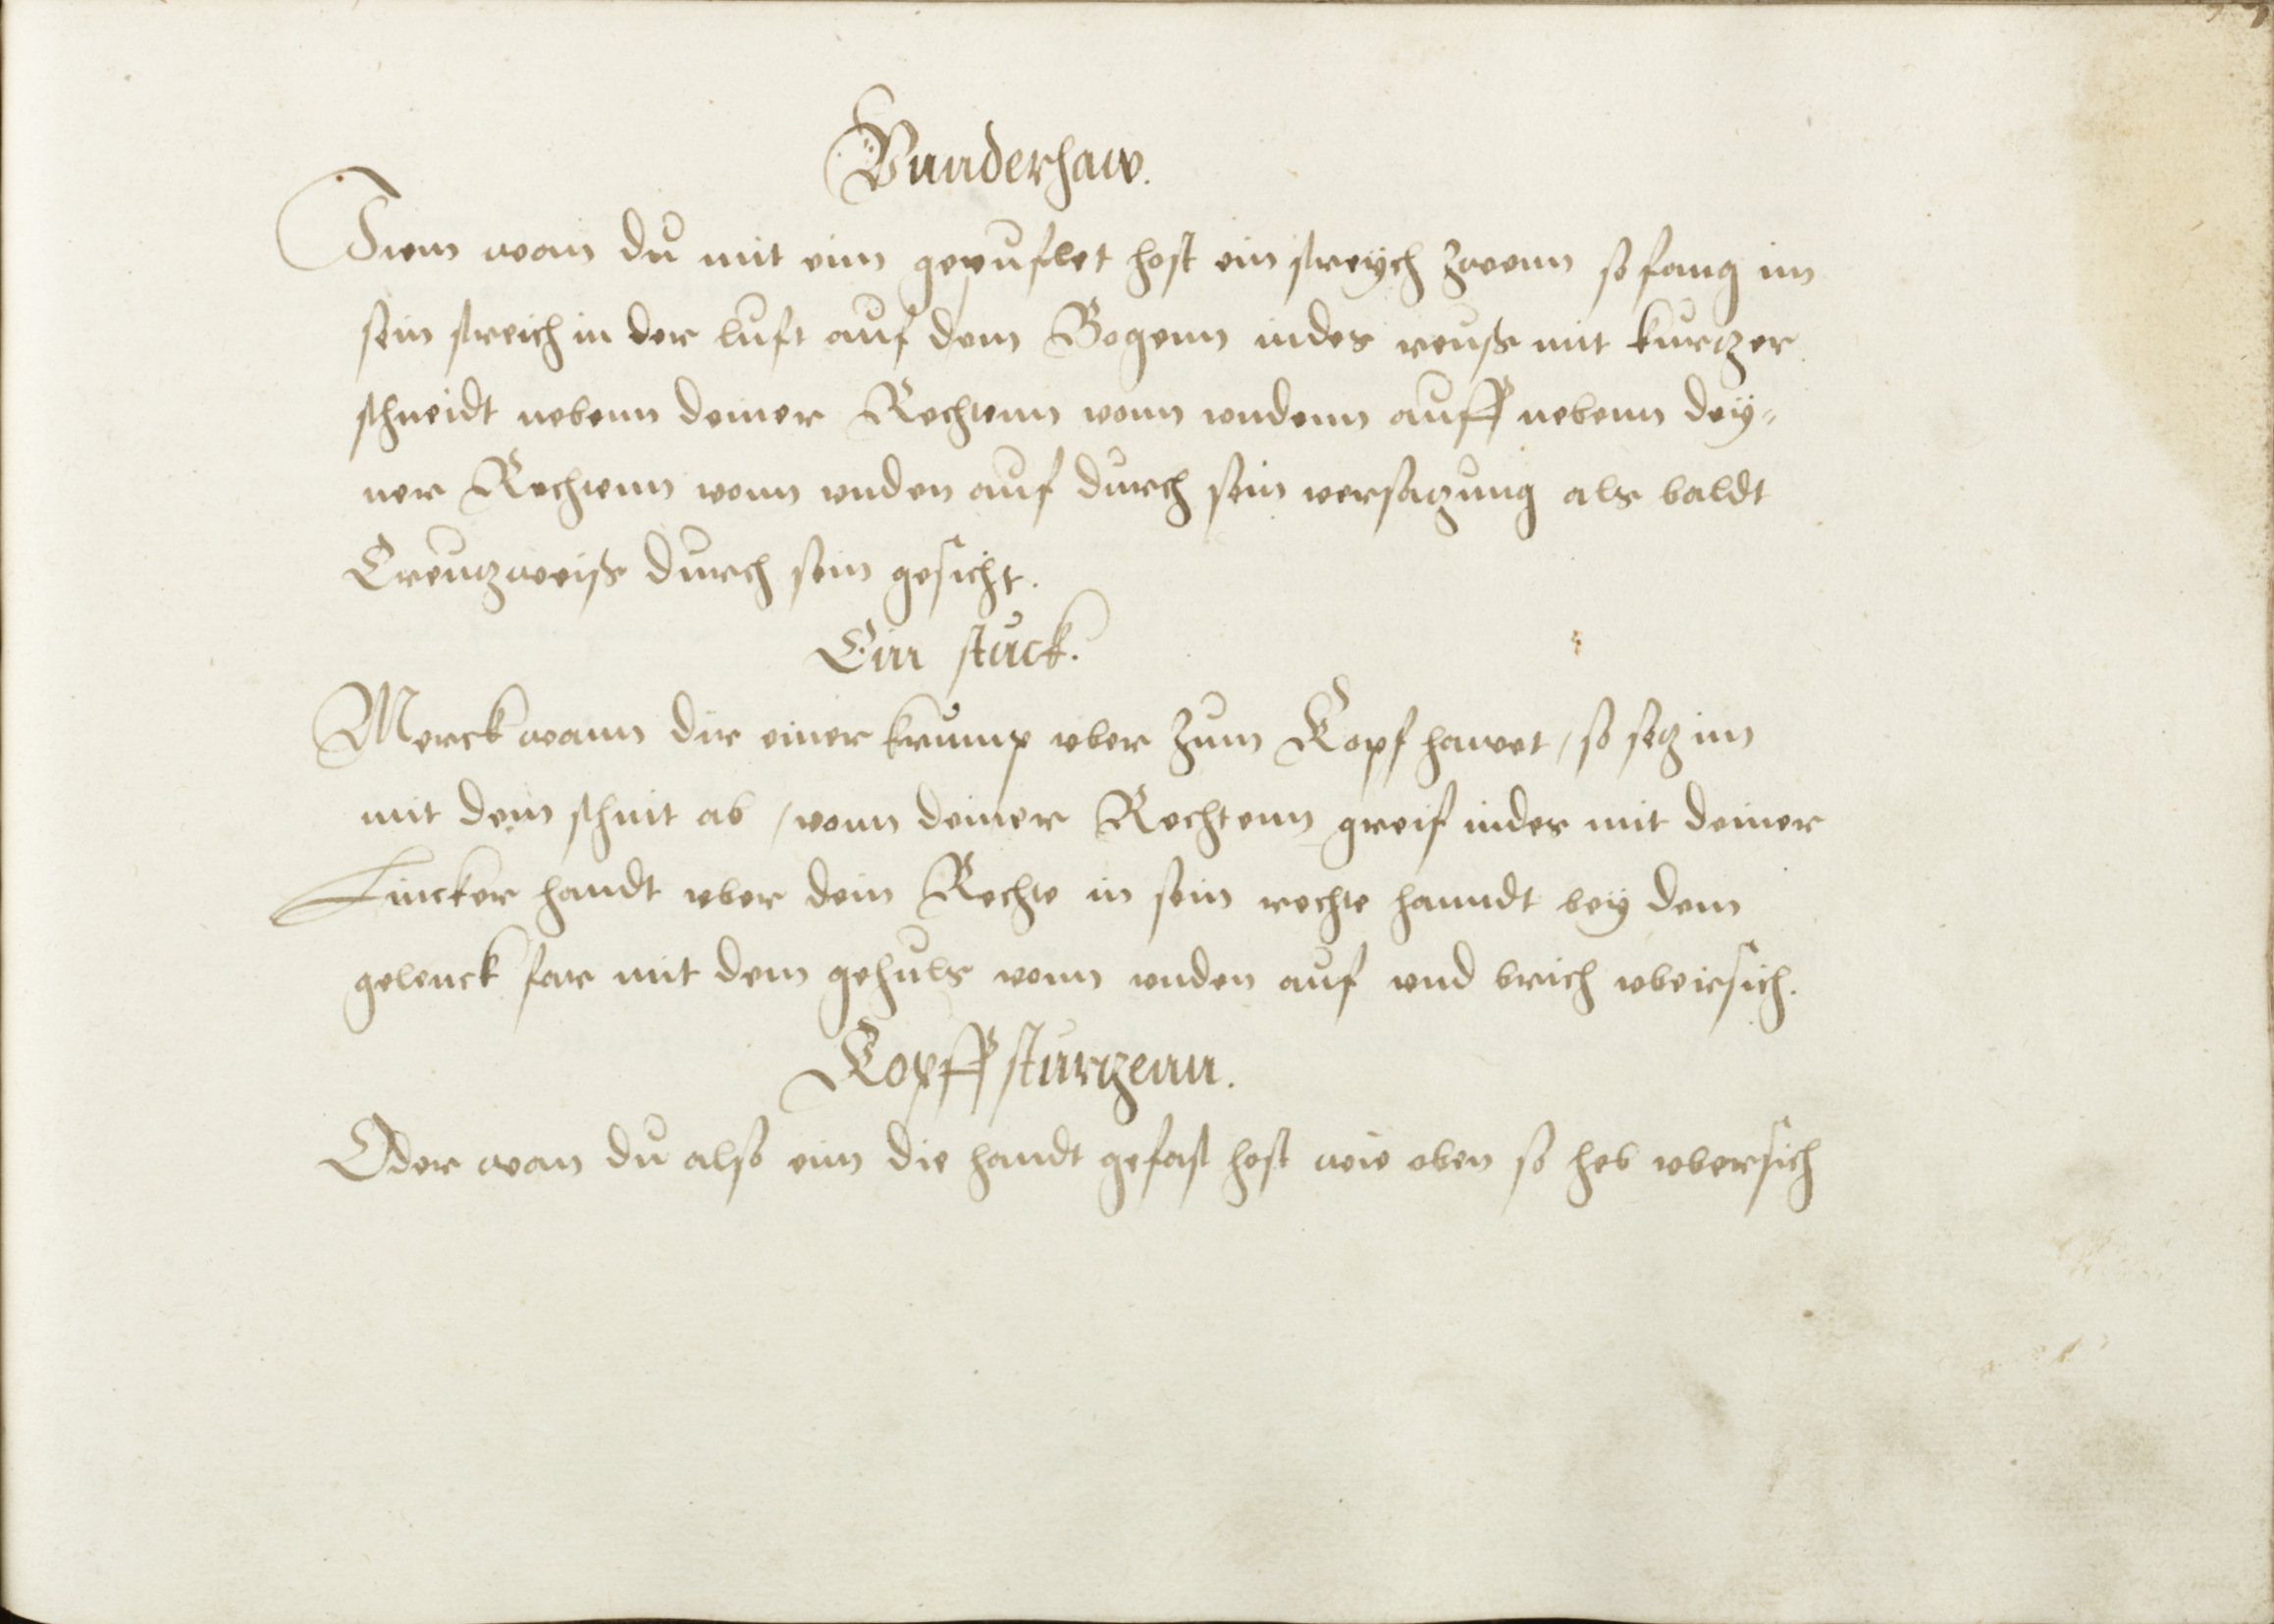 Vunderhaw.
Item wan du mit eim gepuflet host ein streÿch zwenn so fang im
sein streich in der luft auf dem Bogenn indes reuß mit kurtzer
schneidt nebenn deiner Rechtenn vonn vndenn auff nebenn deÿ⸗
ner Rechtenn vonn vnden auf durch sein versatzung als baldt
Creutzweiß durch sein gesicht.
Ein stuck.
Merck wann dir einer krump vber zum Kopf hawet / so setz im
mit dem schnit ab / vonn deiner Rechtenn greif indes mit deiner
Lincker handt vber dein Rechte in sein rechte hanndt beÿ dem
gelenck far mit dem gehuls vonn vnden auf vnd brich vbersich.
Kopffsturtzenn.
Oder wan du also eim die handt gefast host wie oben so heb vbersich